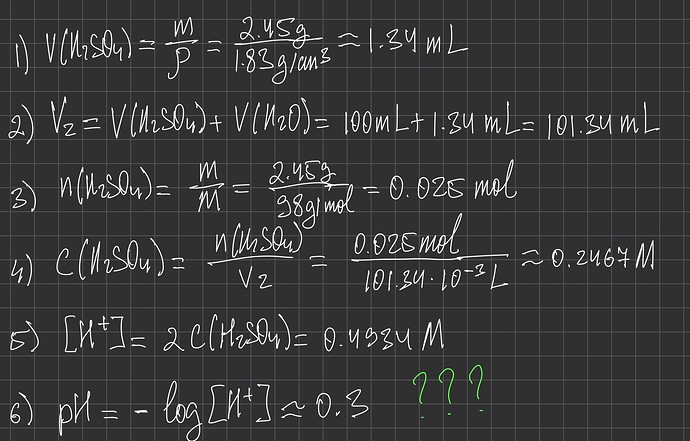 1) V(H₂SO₄) = m/ρ = 2.45g/1.83g/cm³ ≈ 1.34 mL
2) V₂ = V(H₂SO₄) + V(H₂O) = 100mL + 1.34 mL = 101.34 mL
3) n(H₂SO₄) = m/M = 2.45g/98g/mol = 0.025 mol
4) C(H₂SO₄) = n(H₂SO₄)/V₂ = 0.025mol/101.34·10⁻³L ≈ 0.2467 M
5) [H⁺] = 2C(H₂SO₄) = 0.4934 M
6) pH = - log[H⁺] ≈ 0.3 ???